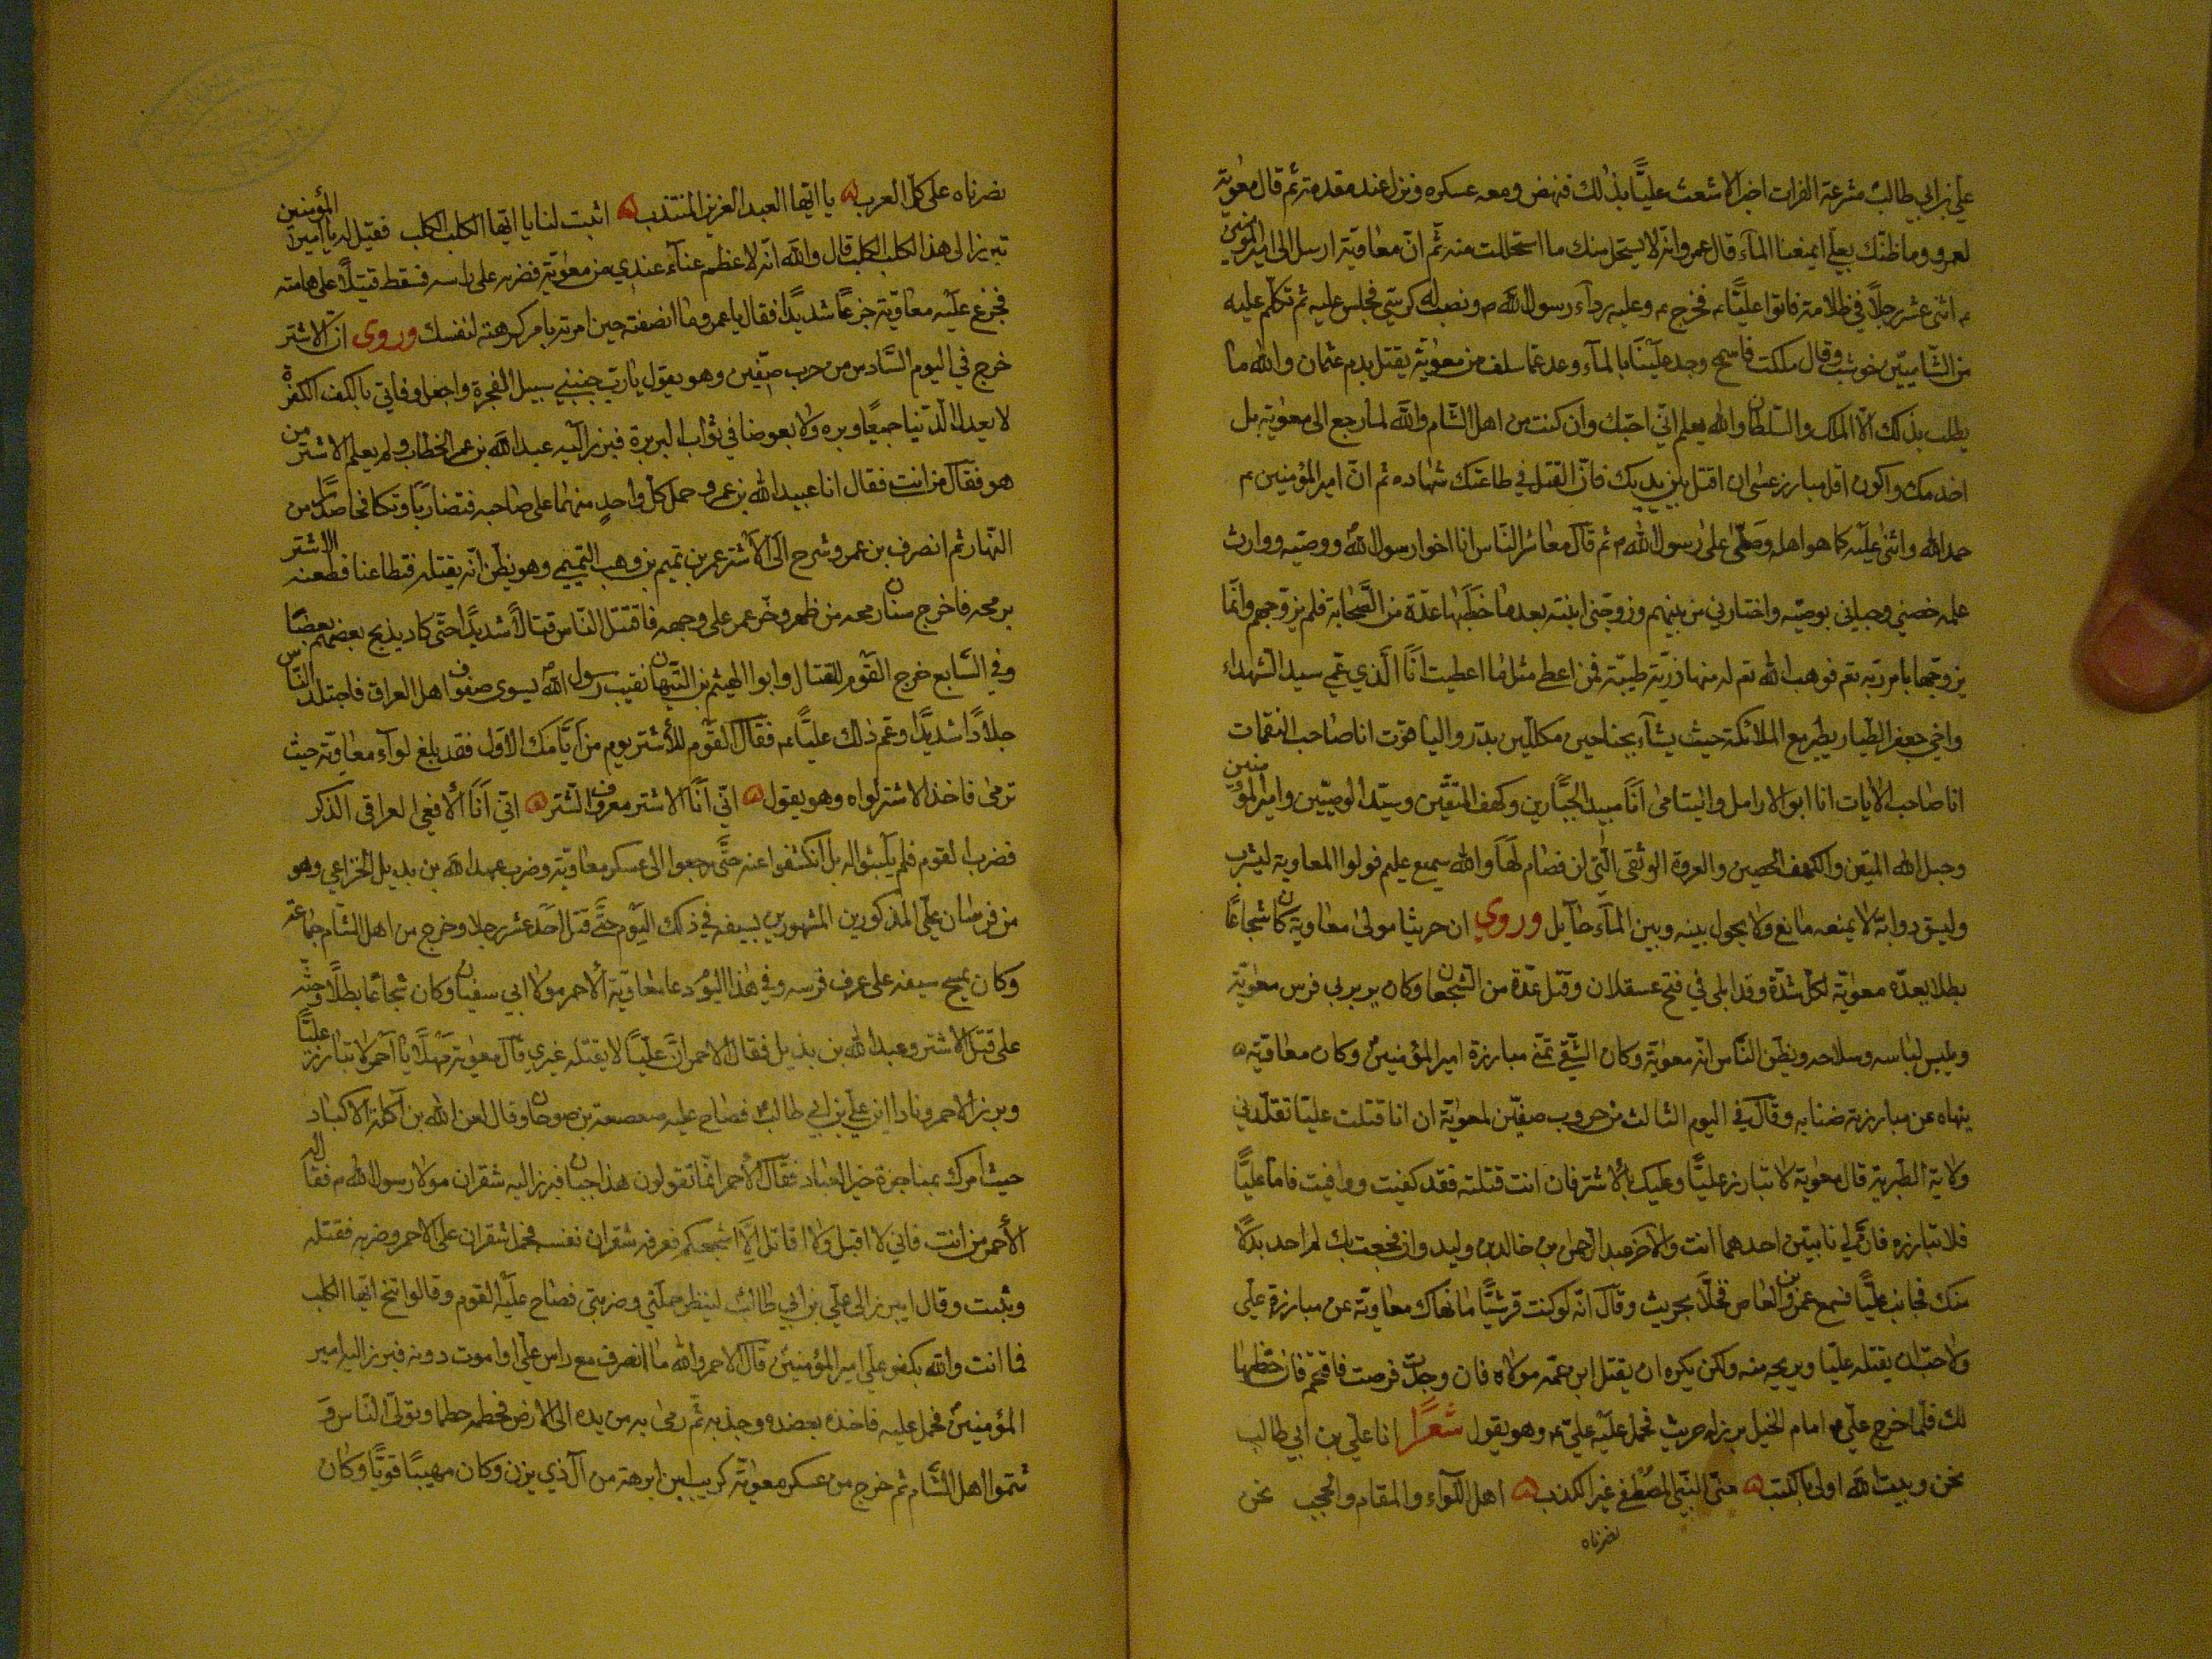 علي بن ابي طالب مشرعة الفرات اخبر الاشعث عليًّا بذلك فنهض ومعه عسكره ونزل عنده مقدمته ثم قال معوية
لعمرو وما ظنّك بعلي ايمنعنا المآء قال عمرو انّه لا يستحل منك ما استحللت منه ثم انّ معاوية ارسل الى امير المؤمنين
م اثنى عشر رجلاً في ظلامته فاتوا عليًّا م فخرج م وعليه رداء رسول الله م ونصب له كرسي فجلس عليه ثم تكلّم عليه
من الشاميّين خوشب وقال ملكت فاسجح وجد علينا بالمآء وعد عمّا سلف من معوية يقتل بدم عثمان والله ما
يطلب بذلك الّا الملك والسّلطان والله يعلم انّي احبّك وان كنت من اهل الشّام والله لما رجع الى معوية بل
اخدمك واكون اوّل مبارز عسى ان اقتل بين يديك فانّ القتل في طاعتك شهاده ثم انّ امير المؤمنين م
حمد الله واثنى عليه كما هو اهله وصلّى على رسول الله م ثم قال معاشر الناس انا اخو رسول الله ووصيّه ووارث
علمه خصني وحباني بوصيّه واختارني من بينهم وزوجني ابنته بعد ما خطبها عدّة من الصّحابة فلم يزوجهم وانّما
يزوجها بامر ربّه تعم فوهب الله تعم له منها ذرّية طيبّة فمن اعطى مثل ما اعطيت انا الّذي عمّي سيد الشهداء
واخي جعفر الطيار يطير مع الملائكة حيث يشآء بجناحين مكللين بدرّ والياقوت انا صاحب النقمات
انا صاحب الايات انا ابو الارامل واليتامى انا مبيد الجبّارين وكهف المتقّين وسيّد الوصيّين وامير المؤمنين
وحبل الله المتين والكهف الحصين والعروة الوثقى الّتي لا انفصام لها والله سميع عليم فولوا المعاوية ليشرب
وليسق دوابّه لا يمنعه مانع ولا يحول بينه وبين المآء حآيل وروي ان حريثا مولى معاوية كان شجاعًا
بطلا يعدّه معوية لكلّ شدّة وقد ابلى في فتح عسقلان وقتل عدّة من الشجعان وكان يربربي فرس معوية
ويلبس لباسه وسلاحه ويظن النّاس انّه معوية وكان الشّقي تمنّى مبارزة امير المؤمنين وكان معاوية
ينهاه عن مبارزته ضنا به وقال في اليوم الثالث من حروب صفّين لمعوية ان انا قتلت عليّا تقلّدني
ولاية الطبرية قال معوية لا تبارز عليًّا وعليك بالاشتر فان انت قتلته فقد كفيت ووافيت فاما عليًّا
فلا تبارزه فانّ لي نابين احدهما انت والاخر عبد الرحمن بن خالد بن وليد وان فجعت بك لم احد بدلًا
منك فجانب عليًّا فسمع عمرو بن العاص فخلّا بحريث وقال انّه لو كنت قرشيًّا ما نهاك معاوية عن مبارزة علي
ولاحبّ ان يقتله عليّا ويريحه منه ولكن يكره ان يقتل ابن عمّه مولاه فان وجدت فرصت فاقتحم فان حظّها
لك فلّما خرج علي م امام الخيل برز له حريث فحمل عليه علي م وهو يقول شعرًا انا علي بن ابي طالب
نحن وبيت الله اولى بالكتب منّى النبيّ المصطفى غير الكذب اهل اللوآء والمقام والحجب نحن
نصرناه
نصرناه على كلّ العرب يا ايّها العبد العزيز المنتدب اثبت لنا يا ايّها الكلب الكلب فقيل له يا امير المؤمنين
تبرز الى هذا الكلب الكلب قال والله انّه لاعظم عنآء عندي من معوية فضربه على راسه فسقط قتيلاً على هامته
فجزع عليه معاوية جزعًا شديدًا فقال يا عمرو ما انصفته حين امرته بامر كرهته لنفسك وروى انّ الاشتر
خرج في اليوم السّادس من حرب صفّين وهو يقول يا ربّ جنبني سبيل الفجرة واجعل وفاتي باكفّ الكفرة
لا يعدل الدّنيا جميعًا وبره ولا بعوضا في ثواب البررة فبرز اليه عبد الله بن عمر الخطاب ولم يعلم الاشتر من
هو فقال من انت فقال انا عبيد الله بن عمرو حمل كلّ واحدٍ منهما على صاحبه فتضاربا وتكافحا صدرًا من
النّهار ثم انصرف بن عمرو وشرح الى الاشتر عمر بن تميم بن وهب التّميمي وهو يظن انّه يقتله فتطاعنا فطعنه الاشتر
برمحه فاخرج سنان رمحه من ظهره وخّر عمر على وجهه فاقتتل النّاس قتالاً شديدًا حتّى كاد يذبح بعضهم بعضًا
وفي السّابع خرج القوم للقتال وابو الهيثم بن التيّهان نقيب رسول الله يسوى صفوف اهل العراق فاجتلد النّاس
جلادًا شديدًا وغم ذلك عليًّا م فقال القوم للأشتر يوم من ايّامك الاوّل فقد بلغ لوآء معاوية حيث
ترمى فاخذ الاشتر لواه وهو يقول انّي انا الاشتر معروف الشّتر انّي انا الافعى العراقي الذكر
فضرب القوم فلم يلبثوا له بل انكشفوا عنه حتّى رجعوا الى عسكر معاوية وضرب عبد الله بن بديل الخزاعي وهو
من فرسان علي المذكورين المشهورين بسيفه في ذلك اليوم حتّى قتل احد عشر رجلا وخرج من اهل الشّام جماعة
وكان يمسح سيفه على عرف فرسه وفي هذا اليوم دعا معاوية الاحمر مولا ابي سفيان وكان شجاعًا بطلًا وحثّه
على قتل الاشتر وعبد الله بن بديل فقال الاحمر انّ عليًّا لا يقتله غيري قال معوية مهلًا يا احمر لا تبارز عليًّا
وبرز الاحمر ونادا اين علي بن ابي طالب فصاح عليه صعصعة بن صوحان وقال لعن الله بن آكلة الاكباد
حيث امرك بمناجزة خير العباد فقال الاحمر انّما تقولون هذا جبنا فبرز اليه شقران مولا رسول الله م فقال له
الأحمر من انت فاني لا اقبل ولا اقاتل الّا اشجعكم فعرفه شقران نفسه فحمل شقران على الاحمر وضربه فقتله
وثبت وقال ايبرز الى علي بن ابي طالب لينظر حملتي وضربتي فصاح عليه القوم وقالوا تنح ايّها الكلب
فما انت والله بكفو علي امير المؤمنين قال الاحمر والله ما انصرف مع راس علي او اموت دونه فبرز اليه امير
المؤمنين فحمل عليه فاخذه بعضده وجذبه ثم رمى به من يده الى الارض فحطمه حطما وتولّى النّاس و
شتموا اهل الشّام ثم خرج من عسكر معوية كريب بن ابرهة من آل ذي يزن وكان مهيبًا قويًّا وكان